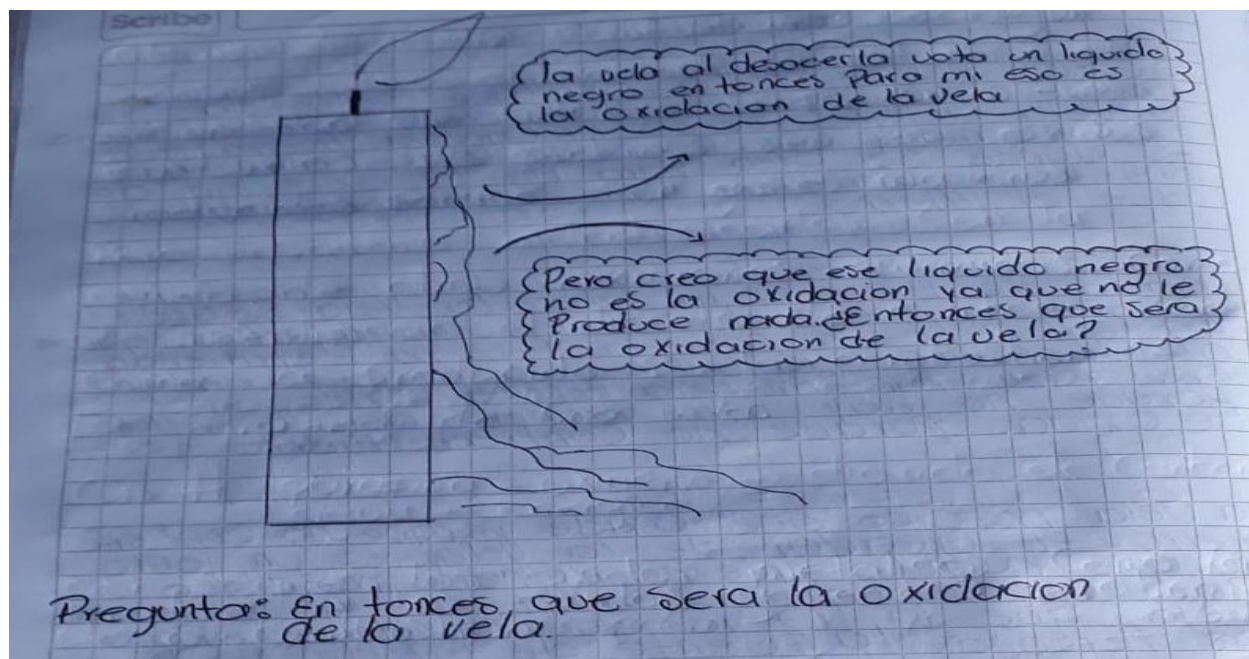 Scribe
la vela al desocerla voto un liquido
negro en tonces Para mi eso es
la oxidacion de la vela
Pero creo que ese liquido negro
no es la oxidacion ya que no le
Produce nada. ¿Entonces que sera
la oxidacion de la vela?
Pregunta: En tonces, que sera la oxidacion
de la vela.